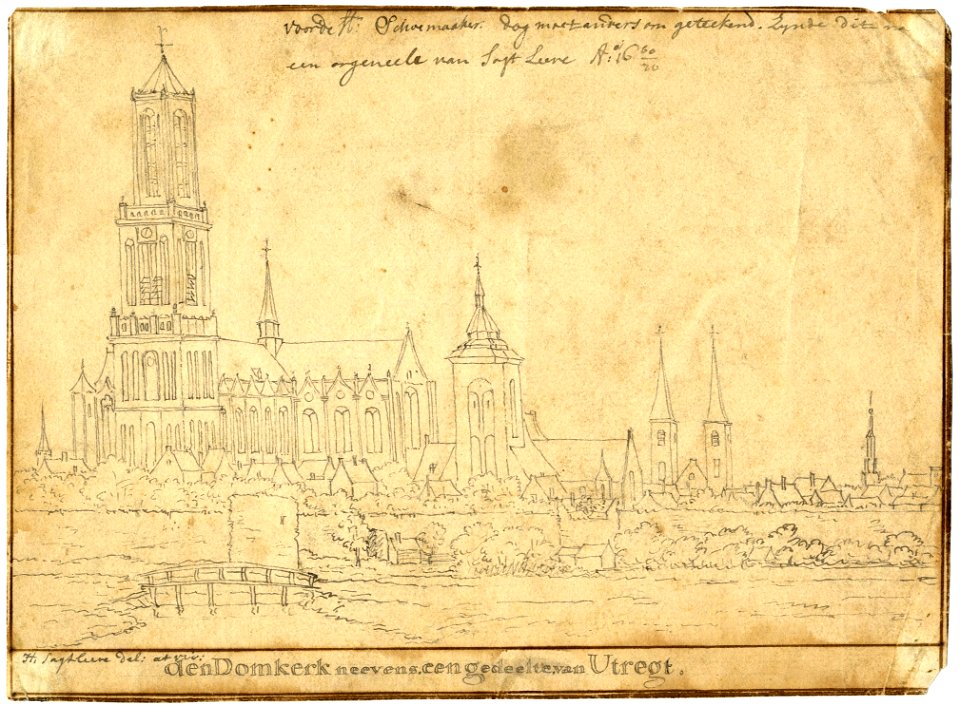 voorde Hr. Schoemaaker. dog moet anders om geteekend. Zynde dit na
een orgeneele van Saft Leeve Ao: 16 60/20
H. Saghtleeve del: at viv:
den Domkerk neevens een gedeelte van Utregt.